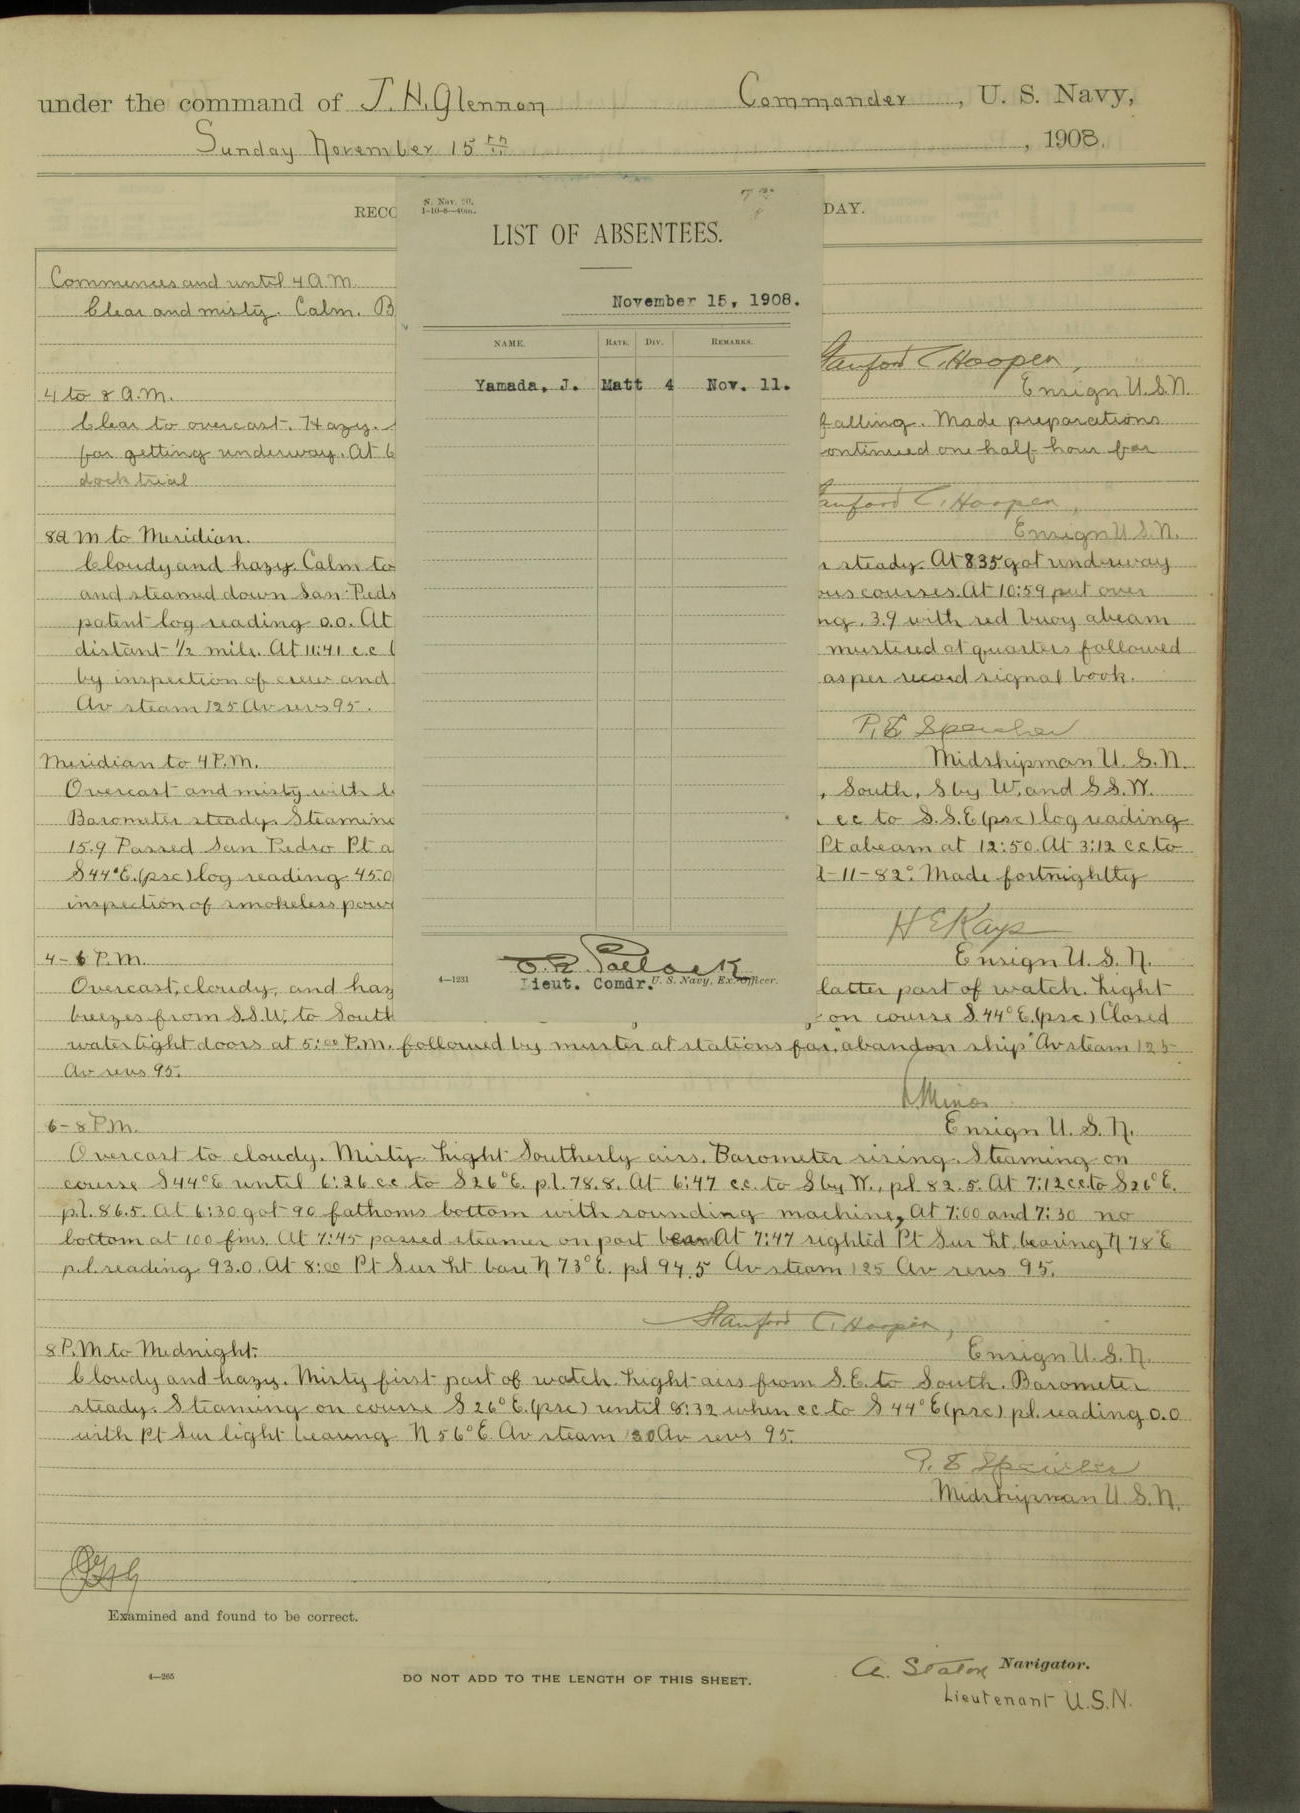 under the command of J. H. Glennon Commander, U. S. Navy,
Sunday November 15th, 1908.
RECO DAY.
N. Nav. 20.
1-10-8—40m.
LIST OF ABSENTEES.
November 15, 1908.
NAME. RATE. DIV. REMARKS.
Yamada, J. Matt 4 Nov. 11.
4—1231
Lieut. Comdr. U. S. Navy, Ex. Officer.
Commences and until 4 A.M.
Clear and misty. Calm. B
Stanford C. Hooper,
Ensign U.S.N.
4 to 8 A.M.
Clear to overcast. Hazy. falling. Made preparations
for getting underway. At 6 ontinued one half hour for
dock trial
Stanford C. Hooper,
Ensign U.S.N.
8 A M to Meridian.
Cloudy and hazy. Calm to steady. At 8 35 got underway
and steamed down San Pedr ous courses. At 10:59 put over
patent log reading 0.0. At ng. 3.9 with red buoy abeam
distant ½ mile. At 11:41 c.c. mustered at quarters followed
by inspection of crew and as per record signal book.
Av steam 125 Av revs 95.
P. E. Speicher
Midshipman U. S. N.
Meridian to 4 P.M.
Overcast and misty with l , South, S by W. and S.S.W.
Barometer steady. Steaming cc to S.S.E (psc) log reading
15.9 Passed San Pedro Pt a Pt abeam at 12:50. At 3:12 c.c. to
S 44° E. (psc) log reading 45.0 -11-82°. Made fortnightly
inspection of smokeless powd
H E Kays
Ensign U. S. N.
4 - 6 P.M.
Overcast, cloudy, and haz latter part of watch. Light
breezes from S.S.W. to South on course S. 44° E. (psc) Closed
water tight doors at 5:00 P.M. followed by muster at stations for "abandon ship" Av steam 125
Av revs 95.
Ensign U. S. N.
6 - 8 P.M.
Overcast to cloudy. Misty. Light Southerly airs. Barometer rising. Steaming on
course S 44° E until 6:26 cc to S 26° E. p.l. 78.8. At 6:47 c.c. to S by W., p.l. 82.5. At 7:12 cc to S 26° E.
p.l. 86.5. At 6:30 got 90 fathoms bottom with sounding machine, At 7:00 and 7:30 no
bottom at 100 fms. At 7:45 passed steamer on port beam At 7:47 sighted Pt Sur Lt. bearing N 78° E
p.l. reading 93.0. At 8:00 Pt Sur Lt bore N 73° E. pl 94.5 Av steam 125 Av revs 95.
Stanford C. Hooper,
Ensign U. S. N.
8 P.M to Midnight.
Cloudy and hazy. Misty first part of watch. Light airs from S.E. to South. Barometer
steady. Steaming on course S 26° E. (psc) until 8:32 when cc to S 44° E (psc) pl. reading 0.0
with Pt Sur light bearing N 56° E. Av steam 130 Av revs 95.
P. E. Speicher
Midshipman U. S. N.
Examined and found to be correct.
4—265
DO NOT ADD TO THE LENGTH OF THIS SHEET.
A. Staton Navigator.
Lieutenant U.S.N.